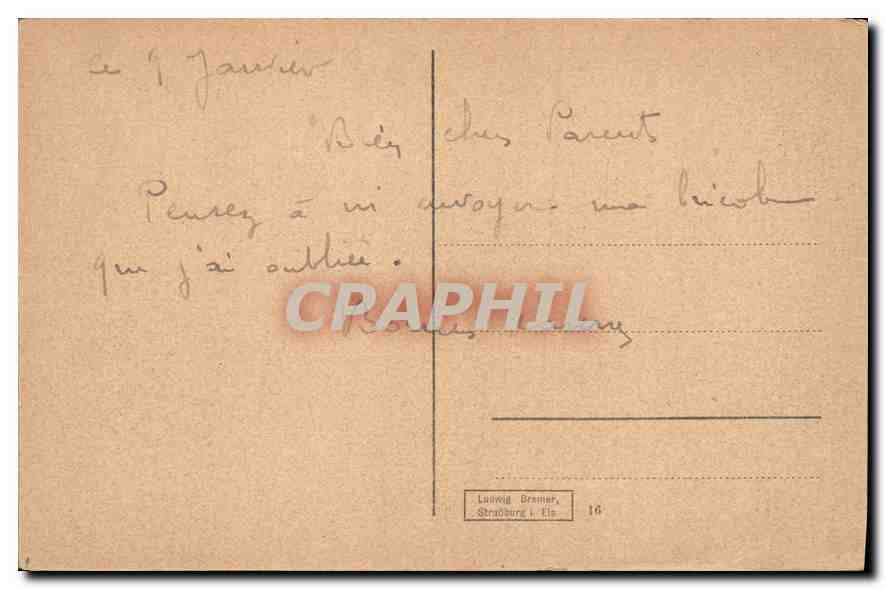 ce 9 Janvier
Bien chers Parents
Pensez à m'envoyer ma bricole
que j'ai oubliée.
CPAPHIL
Bonnes
Ludwig Bremer,
Straßburg i. Els
16